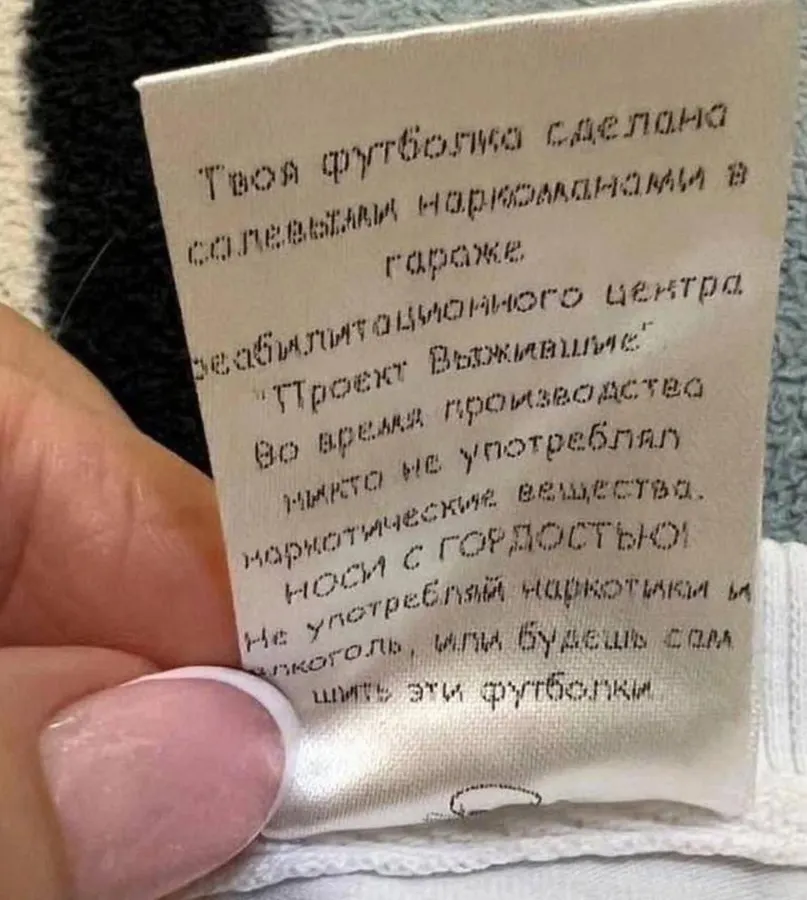 Твоя футболка сделана
солевыми наркоманами в
гараже
реабилитационного центра
"Проект Выжившие".
Во время производства
никто не употреблял
наркотические вещества.
НОСИ С ГОРДОСТЬЮ!
Не употребляй наркотики и
алкоголь, или будешь сам
шить эти футболки